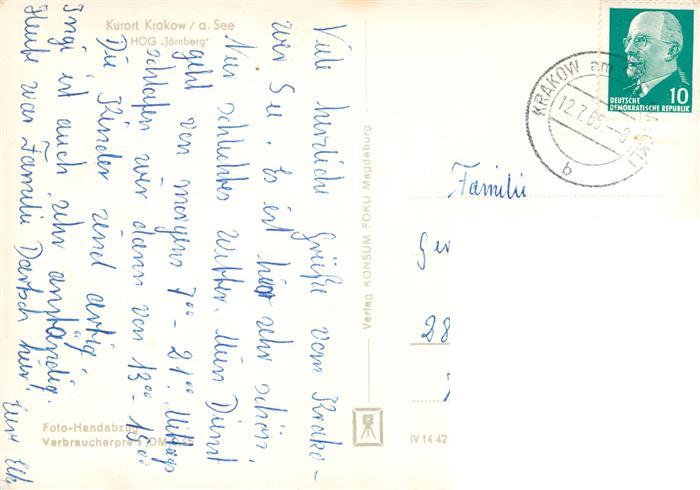 Kurort Krakow / a. See
HOG „Jörnberg“
Viele herzliche Grüße vom Krako-
wer See. Es ist hier sehr schön,
Nur schlechtes Wetter. Mein Dienst
geht von morgens 7⁰⁰ - 21⁰⁰. Mittags
schlafen wir dann von 13⁰⁰ - 15⁰⁰
Die Kinder sind artig,
Ingi ist auch sehr anständig.
Heute war Familie Dartsch hier!
Eure
Foto-Handabzug
Verbraucherpreis DM
Verlag KONSUM FOKU Magdeburg
IV 14 42
KRAKOW am
12.7.66--8
b
10
DEUTSCHE
DEMOKRATISCHE REPUBLIK
Familie
Ger
28